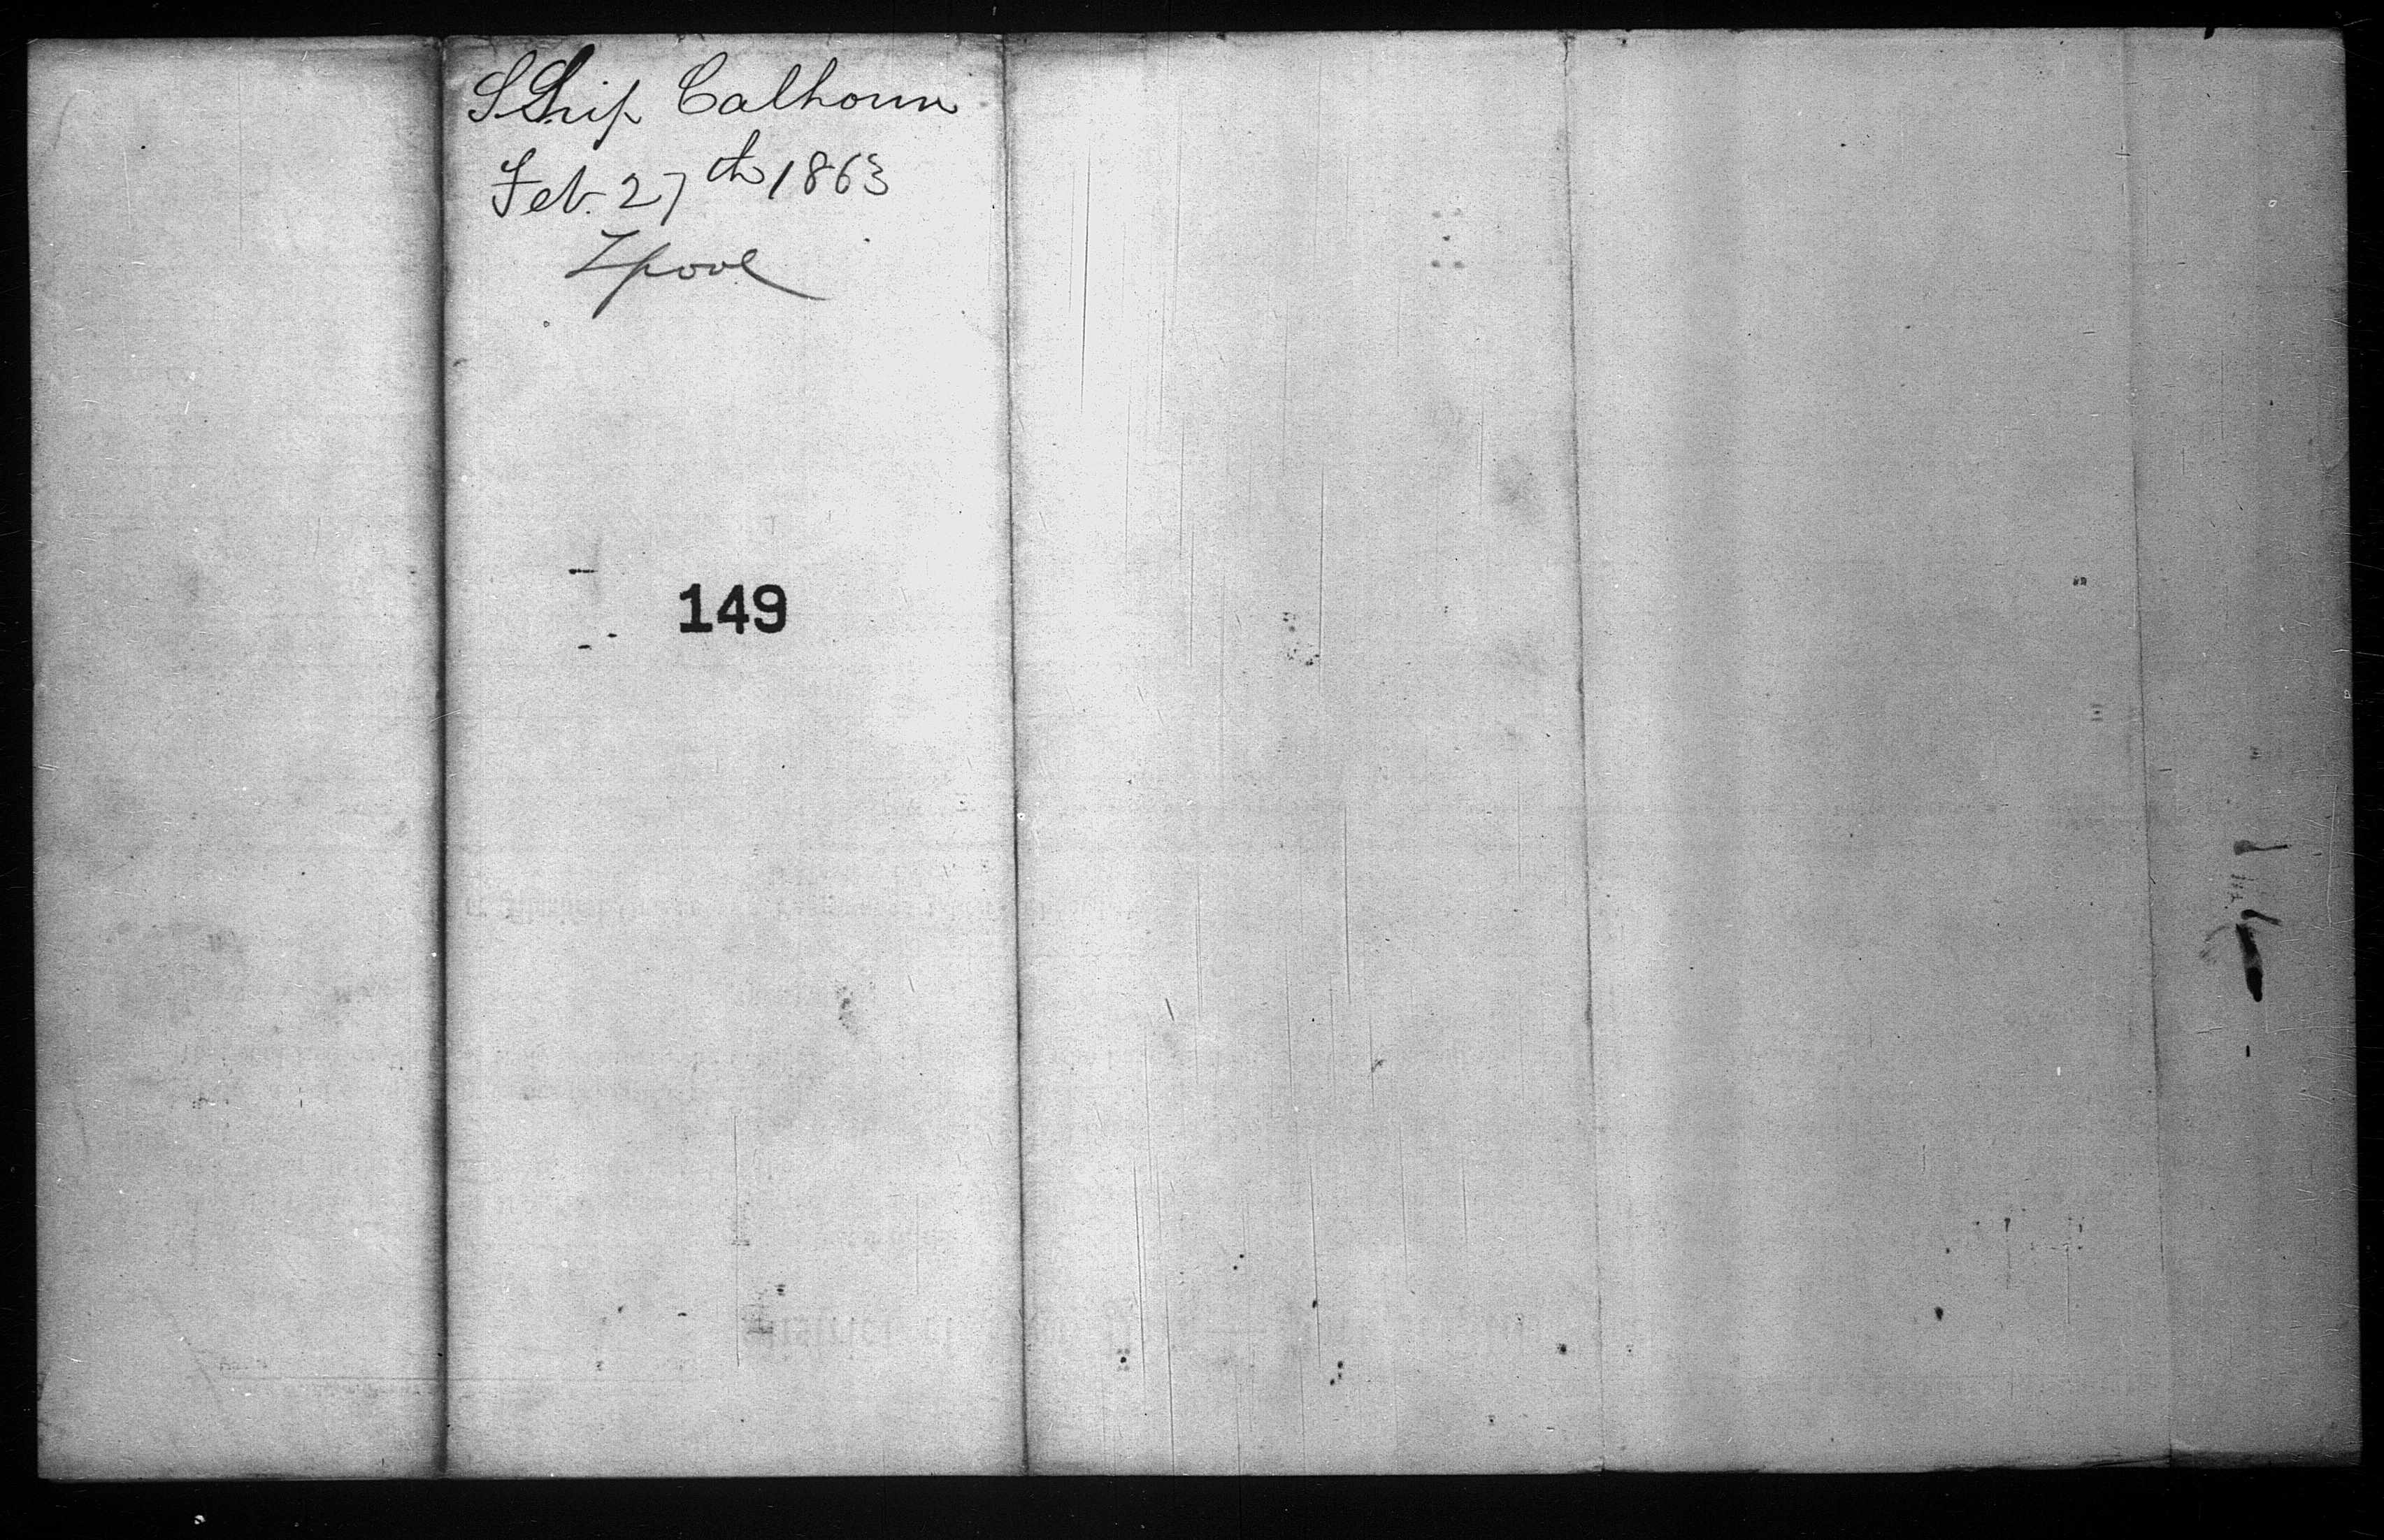 SShip Calhoun
Feb. 27th 1863
Lpool
149